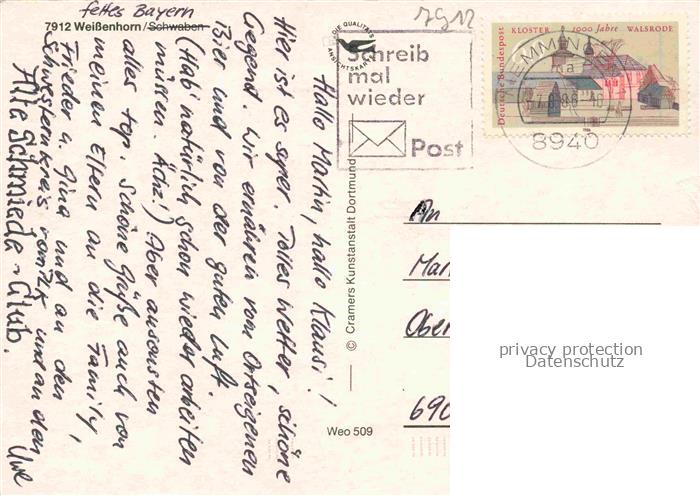 fettes Bayern
7912 Weißenhorn/Schwaben
Hallo Martin, hallo Klausi!
Hier ist es super. Tolles Wetter, schöne
Gegend. Wir ernähren vom Ortseigenen
Bier und von der guten Luft.
(Hab' natürlich schon wieder arbeiten
müssen. Ächz!) Aber ansonsten
alles top. Schöne Grüße auch von
meinen Eltern an die Family,
Frieder u. Gina und an den
Schwesternkreis vom und an den
Alte Schmiede-Club.
Uwe
DIE QUALITÄTS
ANSICHTSKARTE
© Cramers Kunstanstalt Dortmund
Weo 509
7912
Schreib
mal
wieder
Post
Deutsche Bundespost
KLOSTER 1000 Jahre WALSRODE
8940
An
Mar
Ober
690
privacy protection
Datenschutz